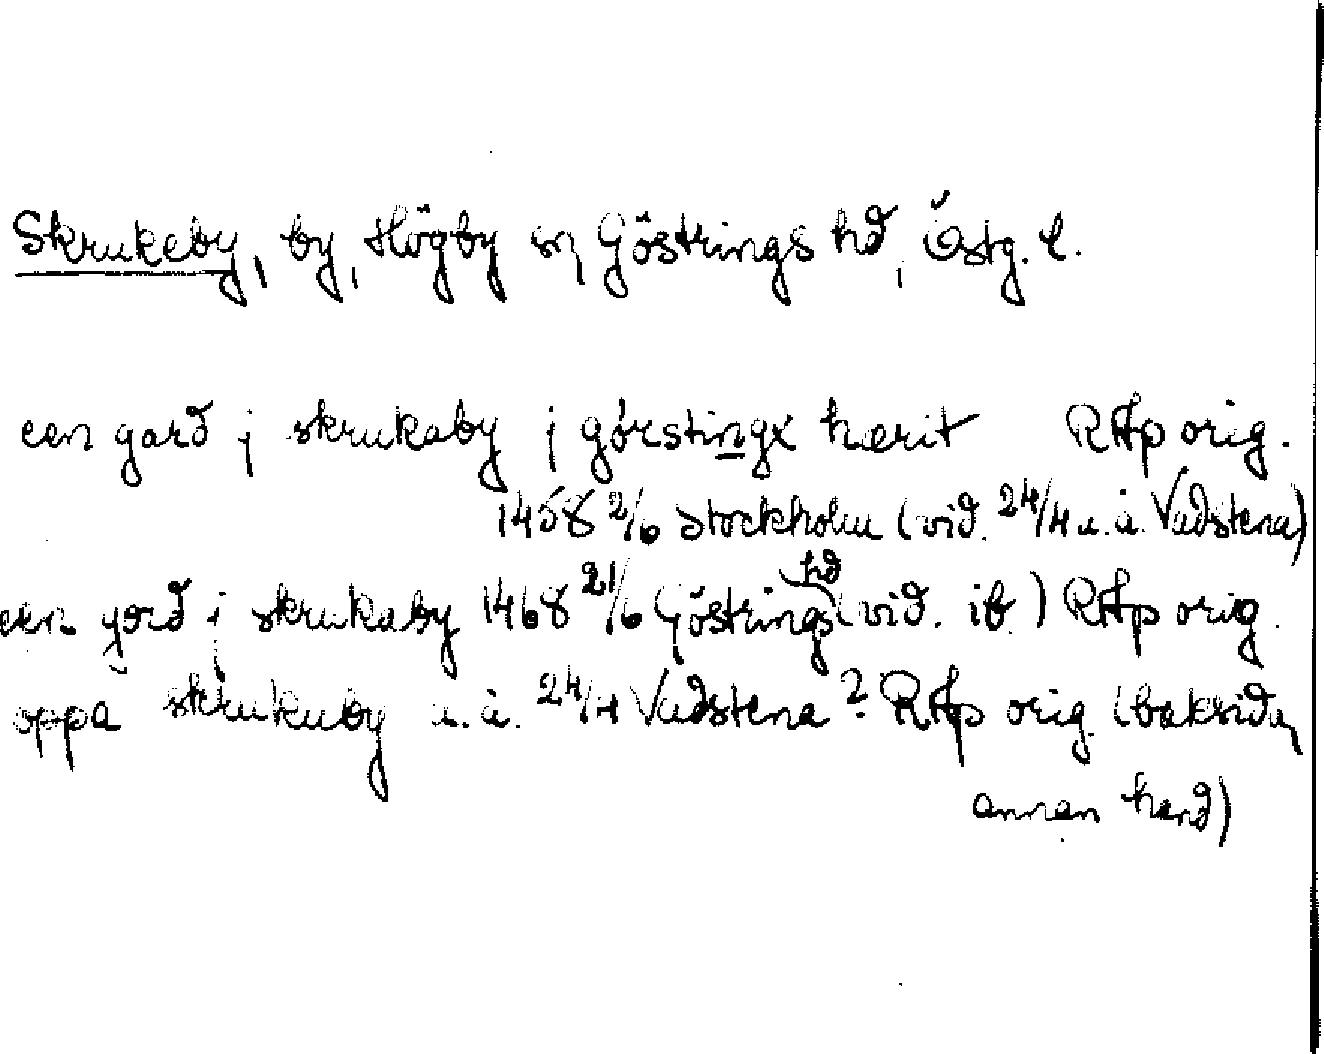 Skrukeby, by, Högby sn Göstrings hd, Östg. l.
een gard j skrukaby j gørstingx hærit RAp orig.
1458 2/6 Stockholm (vid. 24/4 u. å. Vadstena)
een gord j skrukaby 1468 21/6 Göstrings hd (vid. ib.) RAp orig.
oppa skrukuby u. å. 24/4 Vadstena? RAp orig. (baksidan,
annan hand)